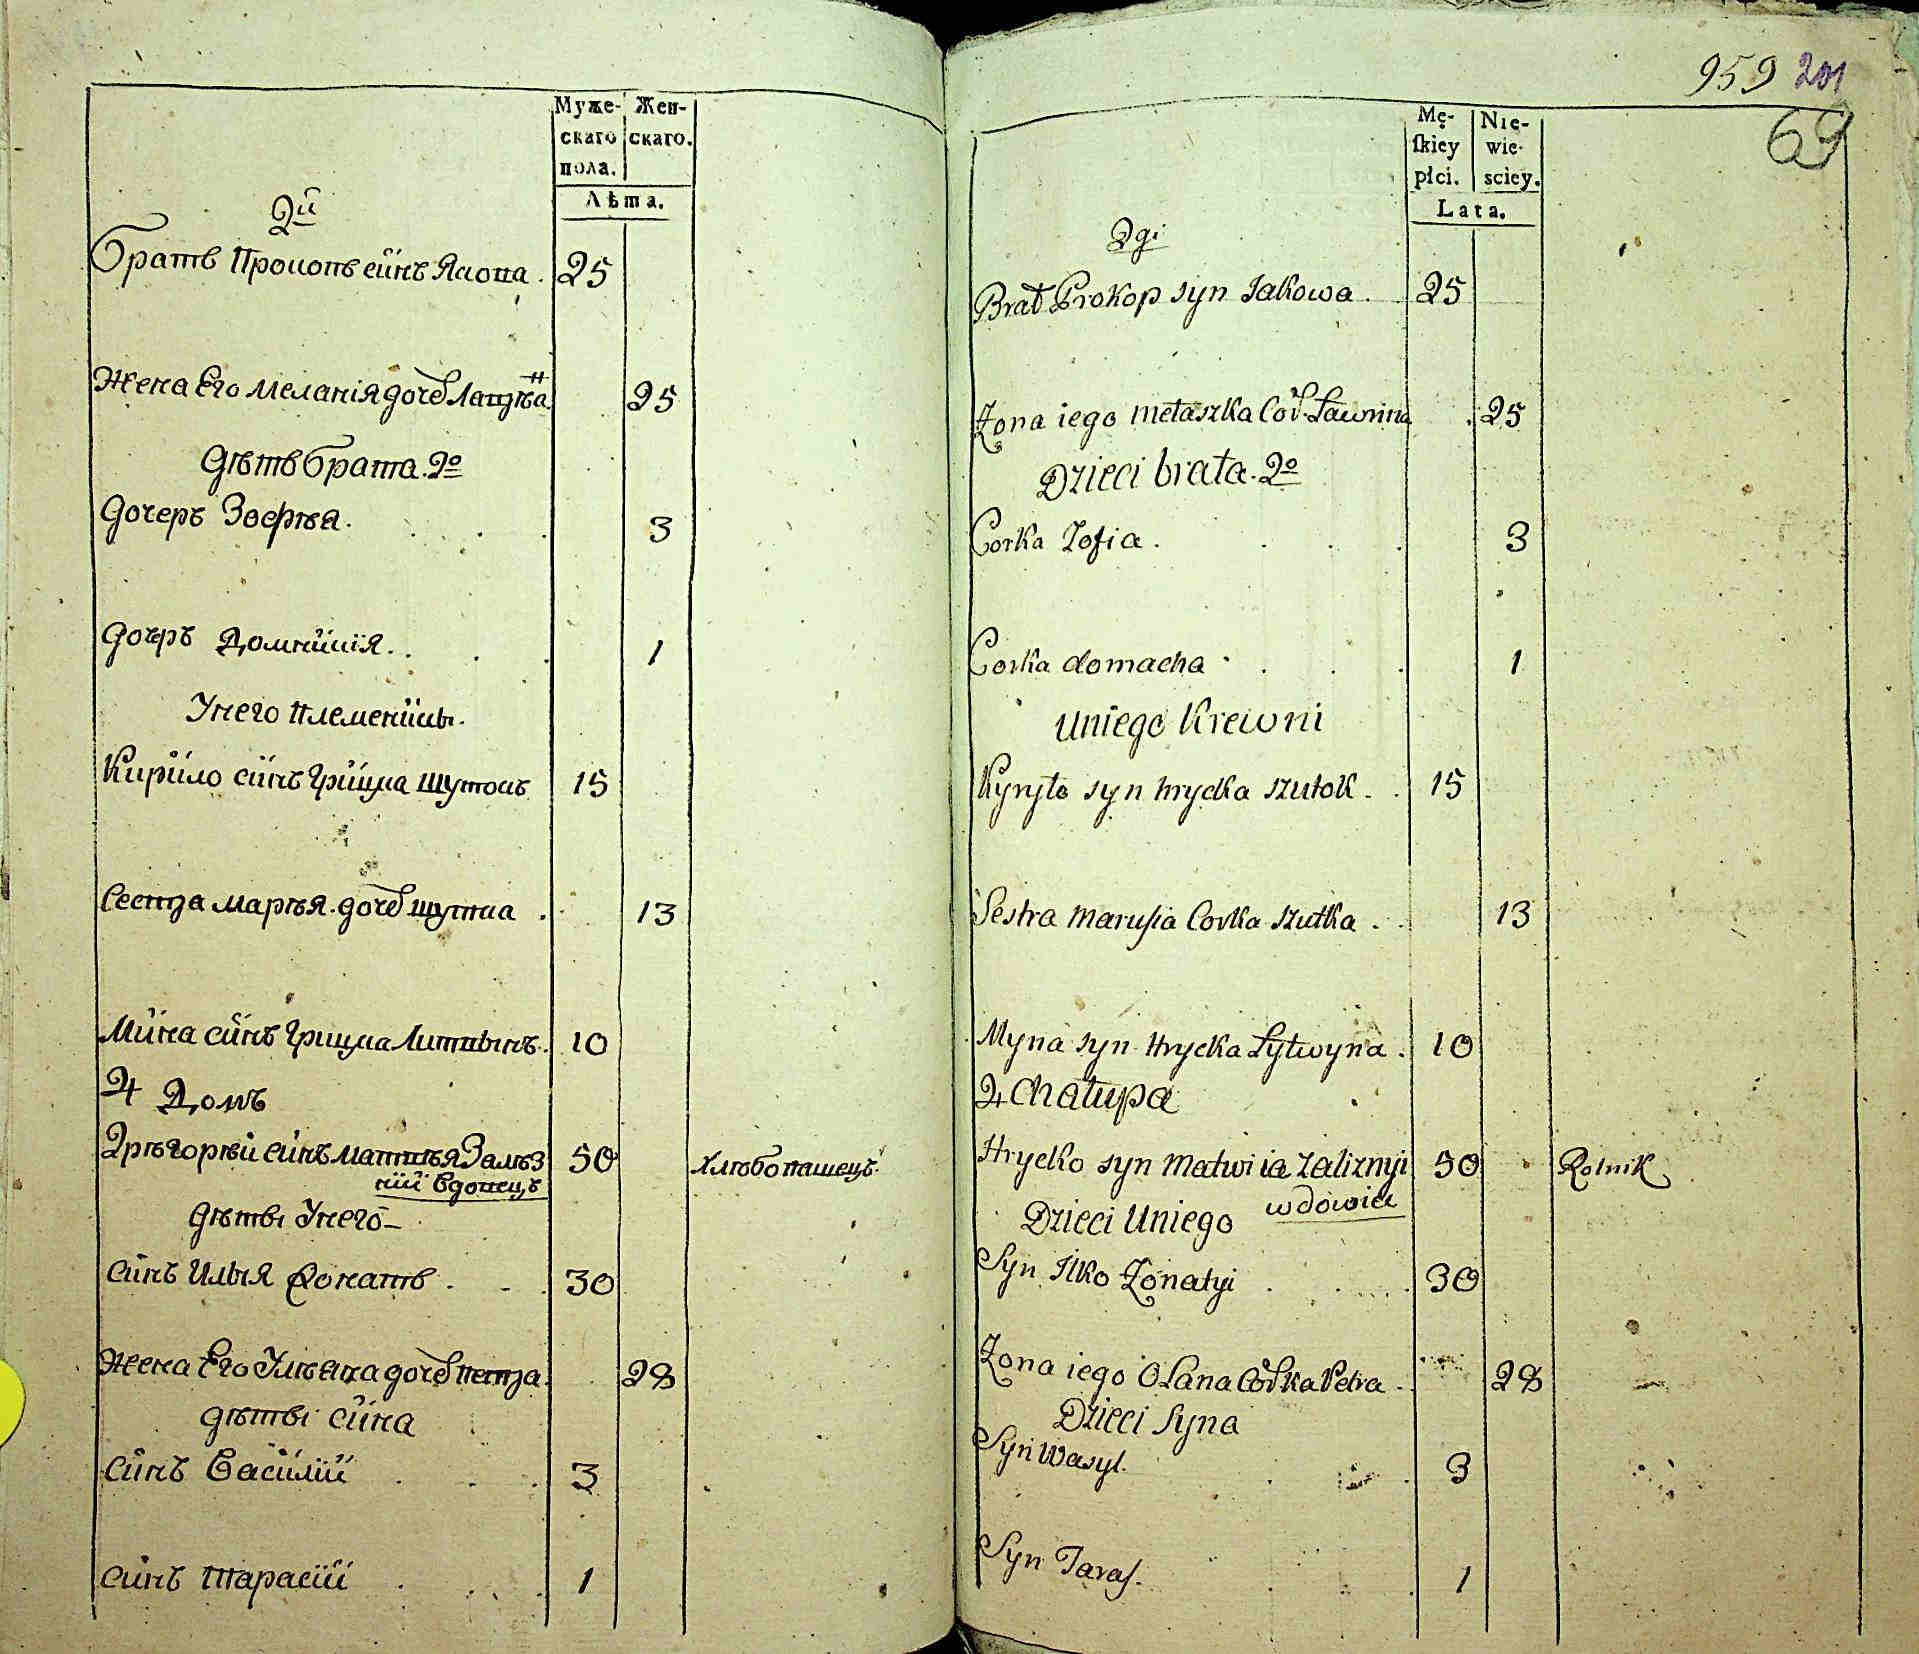 Муже-
скаго
пола.
Жен-
скаго.
Лѣта.
2й
братъ Прокопъ сӥнъ Якова. 25
Жена Его Меланія дочь 25
дѣтѣ брата 2о
дочеръ Зофѣя. 3
дочръ Домникія. 1
Унего племеникы.
Кирило сӥнъ Грицка Шутокъ 15
Сестра Марѣя дочь Шутка. 13
Мина сӥнъ Грицка Литвынъ. 10
4 Домъ
Грѣгорѣй сӥнъ Матвѣя Залѣз 50 хлѣбопашецъ.
ній вдовецъ
дѣтві Унего
сӥнъ Илья 30
Жена Его Улѣяна дочь Петра. 28
дѣтві сӥна
сӥнъ Василій 3
сӥнъ Тарасій 1
959 201
69
Mę-
ſkiey
płci.
Nie-
wie-
sciey.
Lata.
2gi
Brat Prokop syn Jakowa. 25
Żona iego Mełaszka Cor. Ławrina 25
Dzieci brata. 2o
Corka Zofia. 3
Corka domacha 1
uniego Krewni
Kyryło syn hrycka szutok. 15
Sestra marusia Corka szutka. 13
Myna syn Hrycka Lytwyna. 10
4 Chałupa
Hrycko syn Matwiia Zaliznyi 50 Rolnik
wdowiec
Dzieci Uniego
Syn Ilko Żonatyi 30
Żona iego Olana Corka Petra. 28
Dzieci Syna
Syn Wasyl. 3
Syn Taras. 1